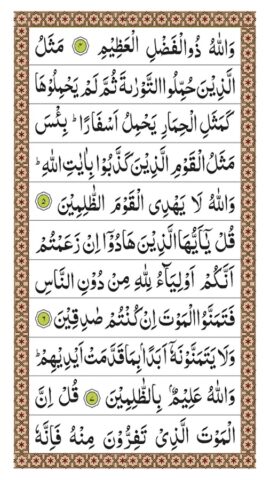 وَاللّٰهُ ذُوالۡفَضۡلِ الۡعَظِيۡمِ ﴿۴﴾ مَثَلُ
الَّذِيۡنَ حُمِّلُوا التَّوۡرٰىةَ ثُمَّ لَمۡ يَحۡمِلُوۡهَا
كَمَثَلِ الۡحِمَارِ يَحۡمِلُ اَسۡفَارًا ؕ بِئۡسَ
مَثَلُ الۡقَوۡمِ الَّذِيۡنَ كَذَّبُوۡا بِاٰيٰتِ اللّٰهِ ؕ
وَاللّٰهُ لَا يَهۡدِى الۡقَوۡمَ الظّٰلِمِيۡنَ ﴿۵﴾
قُلۡ يٰۤاَيُّهَا الَّذِيۡنَ هَادُوۡۤا اِنۡ زَعَمۡتُمۡ
اَنَّكُمۡ اَوۡلِيَآءُ لِلّٰهِ مِنۡ دُوۡنِ النَّاسِ
فَتَمَنَّوُا الۡمَوۡتَ اِنۡ كُنۡتُمۡ صٰدِقِيۡنَ ﴿۶﴾
وَلَا يَتَمَنَّوۡنَهٗۤ اَبَدًۢا بِمَا قَدَّمَتۡ اَيۡدِيۡهِمۡ ؕ
وَاللّٰهُ عَلِيۡمٌۢ بِالظّٰلِمِيۡنَ ﴿۷﴾ قُلۡ اِنَّ
الۡمَوۡتَ الَّذِىۡ تَفِرُّوۡنَ مِنۡهُ فَاِنَّهٗ